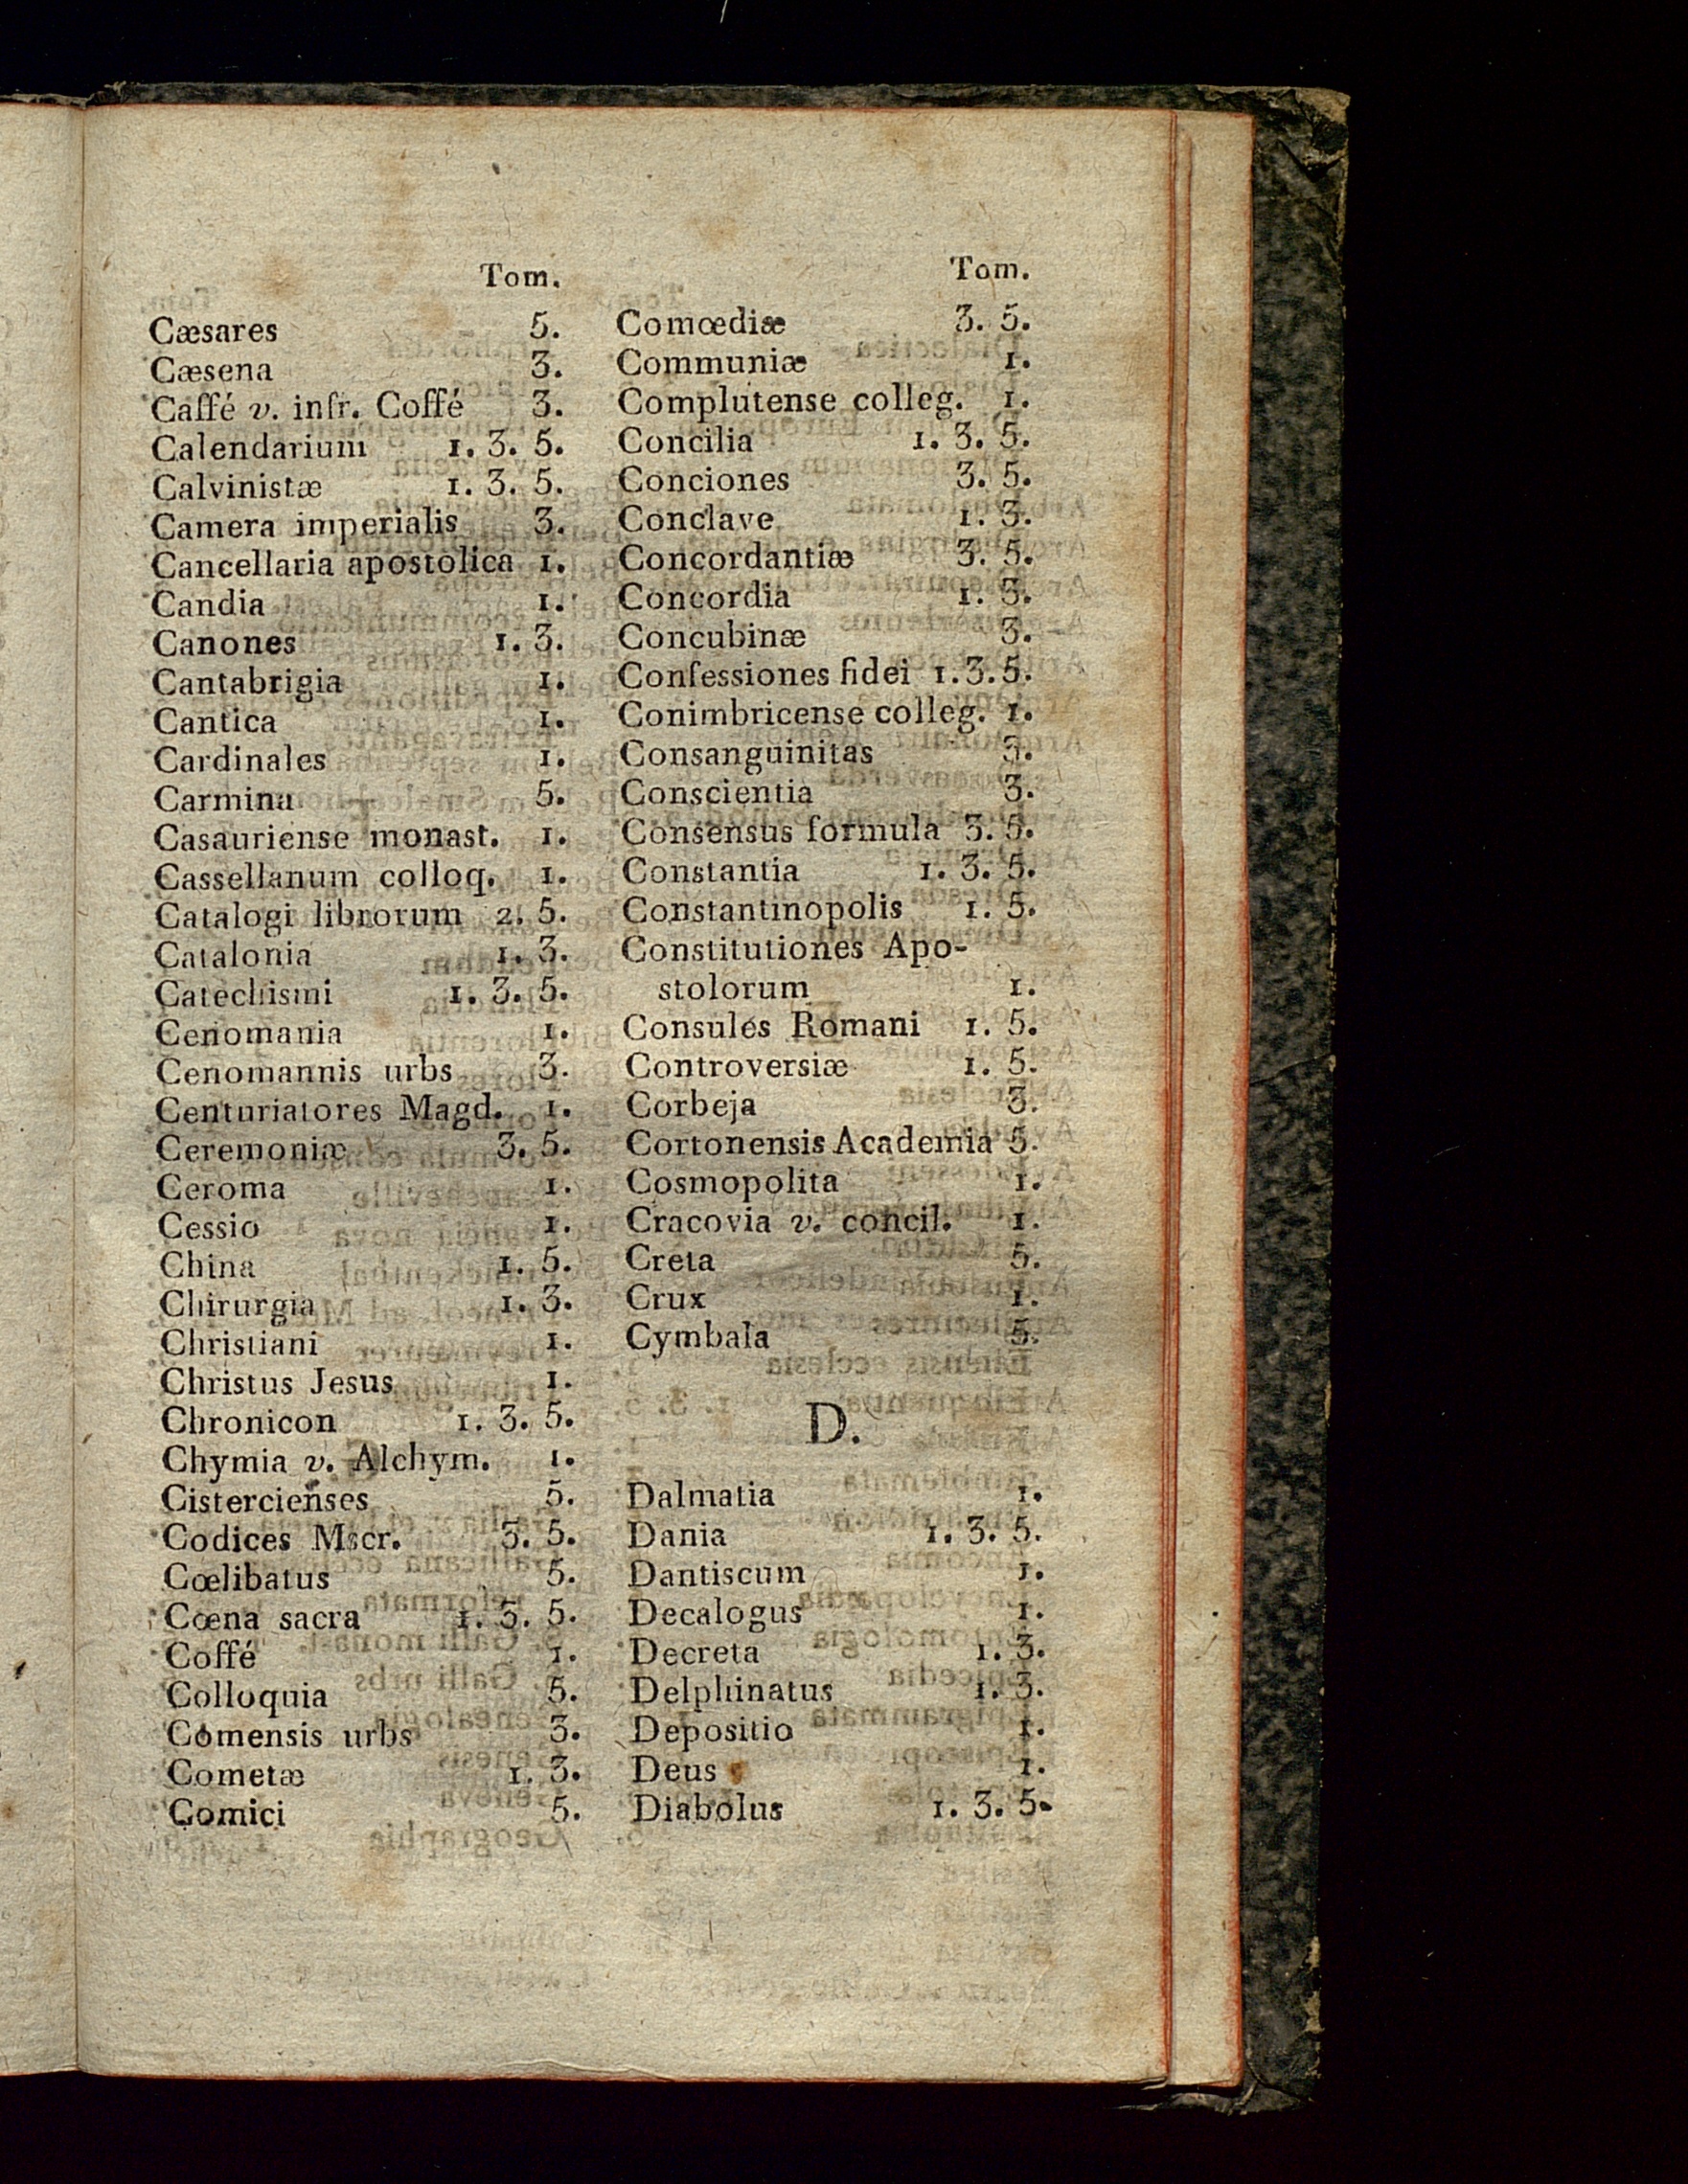 Tom.
Cæsares 5.
Cæsena 3.
Caffé v. infr. Coffé 3.
Calendarium 1. 3. 5.
Calvinistæ 1. 3. 5.
Camera imperialis 3.
Cancellaria apostolica 1.
Candia 1.
Canones 1. 3.
Cantabrigia 1.
Cantica 1.
Cardinales 1.
Carmina 5.
Casauriense monast. 1.
Cassellanum colloq. 1.
Catalogi librorum 2. 5.
Catalonia 1. 3.
Catechismi 1. 3. 5.
Cenomania 1.
Cenomannis urbs 3.
Centuriatores Magd. 1.
Ceremoniæ 3. 5.
Ceroma 1.
Cessio 1.
China 1. 5.
Chirurgia 1. 3.
Christiani 1.
Christus Jesus 1.
Chronicon 1. 3. 5.
Chymia v. Alchym. 1.
Cistercienses 5.
Codices Mscr. 3. 5.
Cœlibatus 5.
Cœna sacra 1. 3. 5.
Coffé 1.
Colloquia 5.
Comensis urbs 3.
Cometæ 1. 3.
Comici 5.
Tom.
Comœdiæ 3. 5.
Communiæ 1.
Complutense colleg. 1.
Concilia 1. 3. 5.
Conciones 3. 5.
Conclave 1. 3.
Concordantiæ 3. 5.
Concordia 1. 3.
Concubinæ 3.
Confessiones fidei 1. 3. 5.
Conimbricense colleg. 1.
Consanguinitas 3.
Conscientia 3.
Consensus formula 3. 5.
Constantia 1. 3. 5.
Constantinopolis 1. 5.
Constitutiones Apo-
stolorum 1.
Consules Romani 1. 5.
Controversiæ 1. 5.
Corbeja 3.
Cortonensis Academia 5.
Cosmopolita 1.
Cracovia v. concil. 1.
Creta 5.
Crux 1.
Cymbala 5.
D.
Dalmatia 1.
Dania 1. 3. 5.
Dantiscum 1.
Decalogus 1.
Decreta 1. 3.
Delphinatus 1. 3.
Depositio 1.
Deus 1.
Diabolus 1. 3. 5.